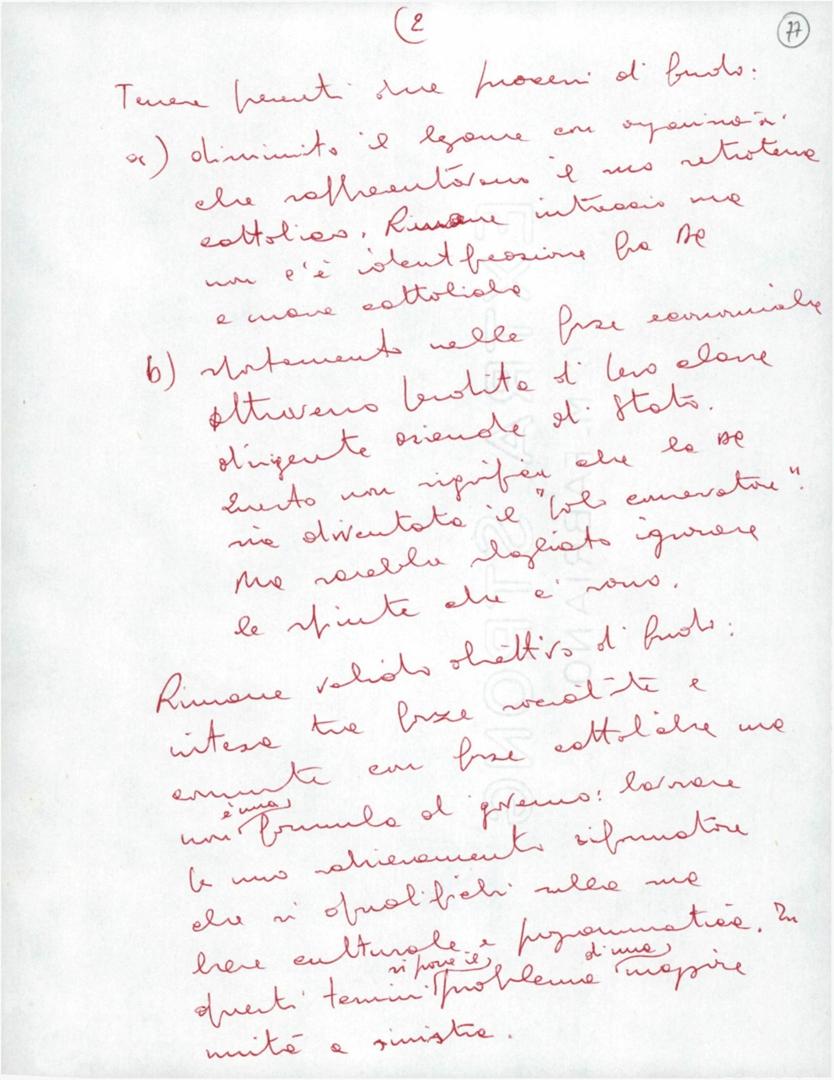 (2
77
Tenere presenti due processi di fondo:
a) diminuito il legame con organizzaz.
che rappresentavano il suo retroterra
cattolico. Rimane intreccio ma
non c'è identificazione fra DC
e mondo cattolico
b) spostamento nelle forze economiche
attraverso perdita di loro classe
dirigente aziende di Stato.
Questo non significa che la DC
sia diventata il "polo conservatore".
Ma sarebbe sbagliato ignorare
le spinte che ci sono.
Rimane valido obiettivo di fondo:
intesa tra forze socialiste e
comuniste con forze cattoliche ma
non è una formula di governo: lavorare
per uno schieramento riformatore
che si qualifichi sulla sua
base culturale e programmatica. In
questi termini si pone il problema di una maggiore
unità a sinistra.